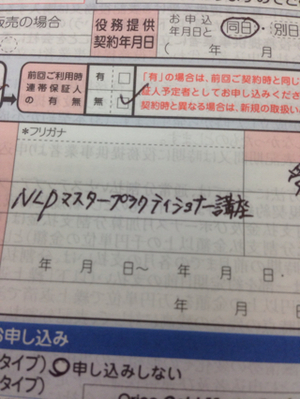 販売の場合
役務提供
契約年月日
お申込
年月日と
同日・別日
( 年 月
前回ご利用時
連帯保証人
の有無
有
無
「有」の場合は、前回ご契約時と同じ
証人予定者としてお申し込みくださ
契約時と異なる場合は、新規の取扱い
*フリガナ
NLPマスタープラクティショナー講座
年 月 日〜 年 月 日・
年 月 日
お申し込み
タイプ) 申し込みしない
タイプ)